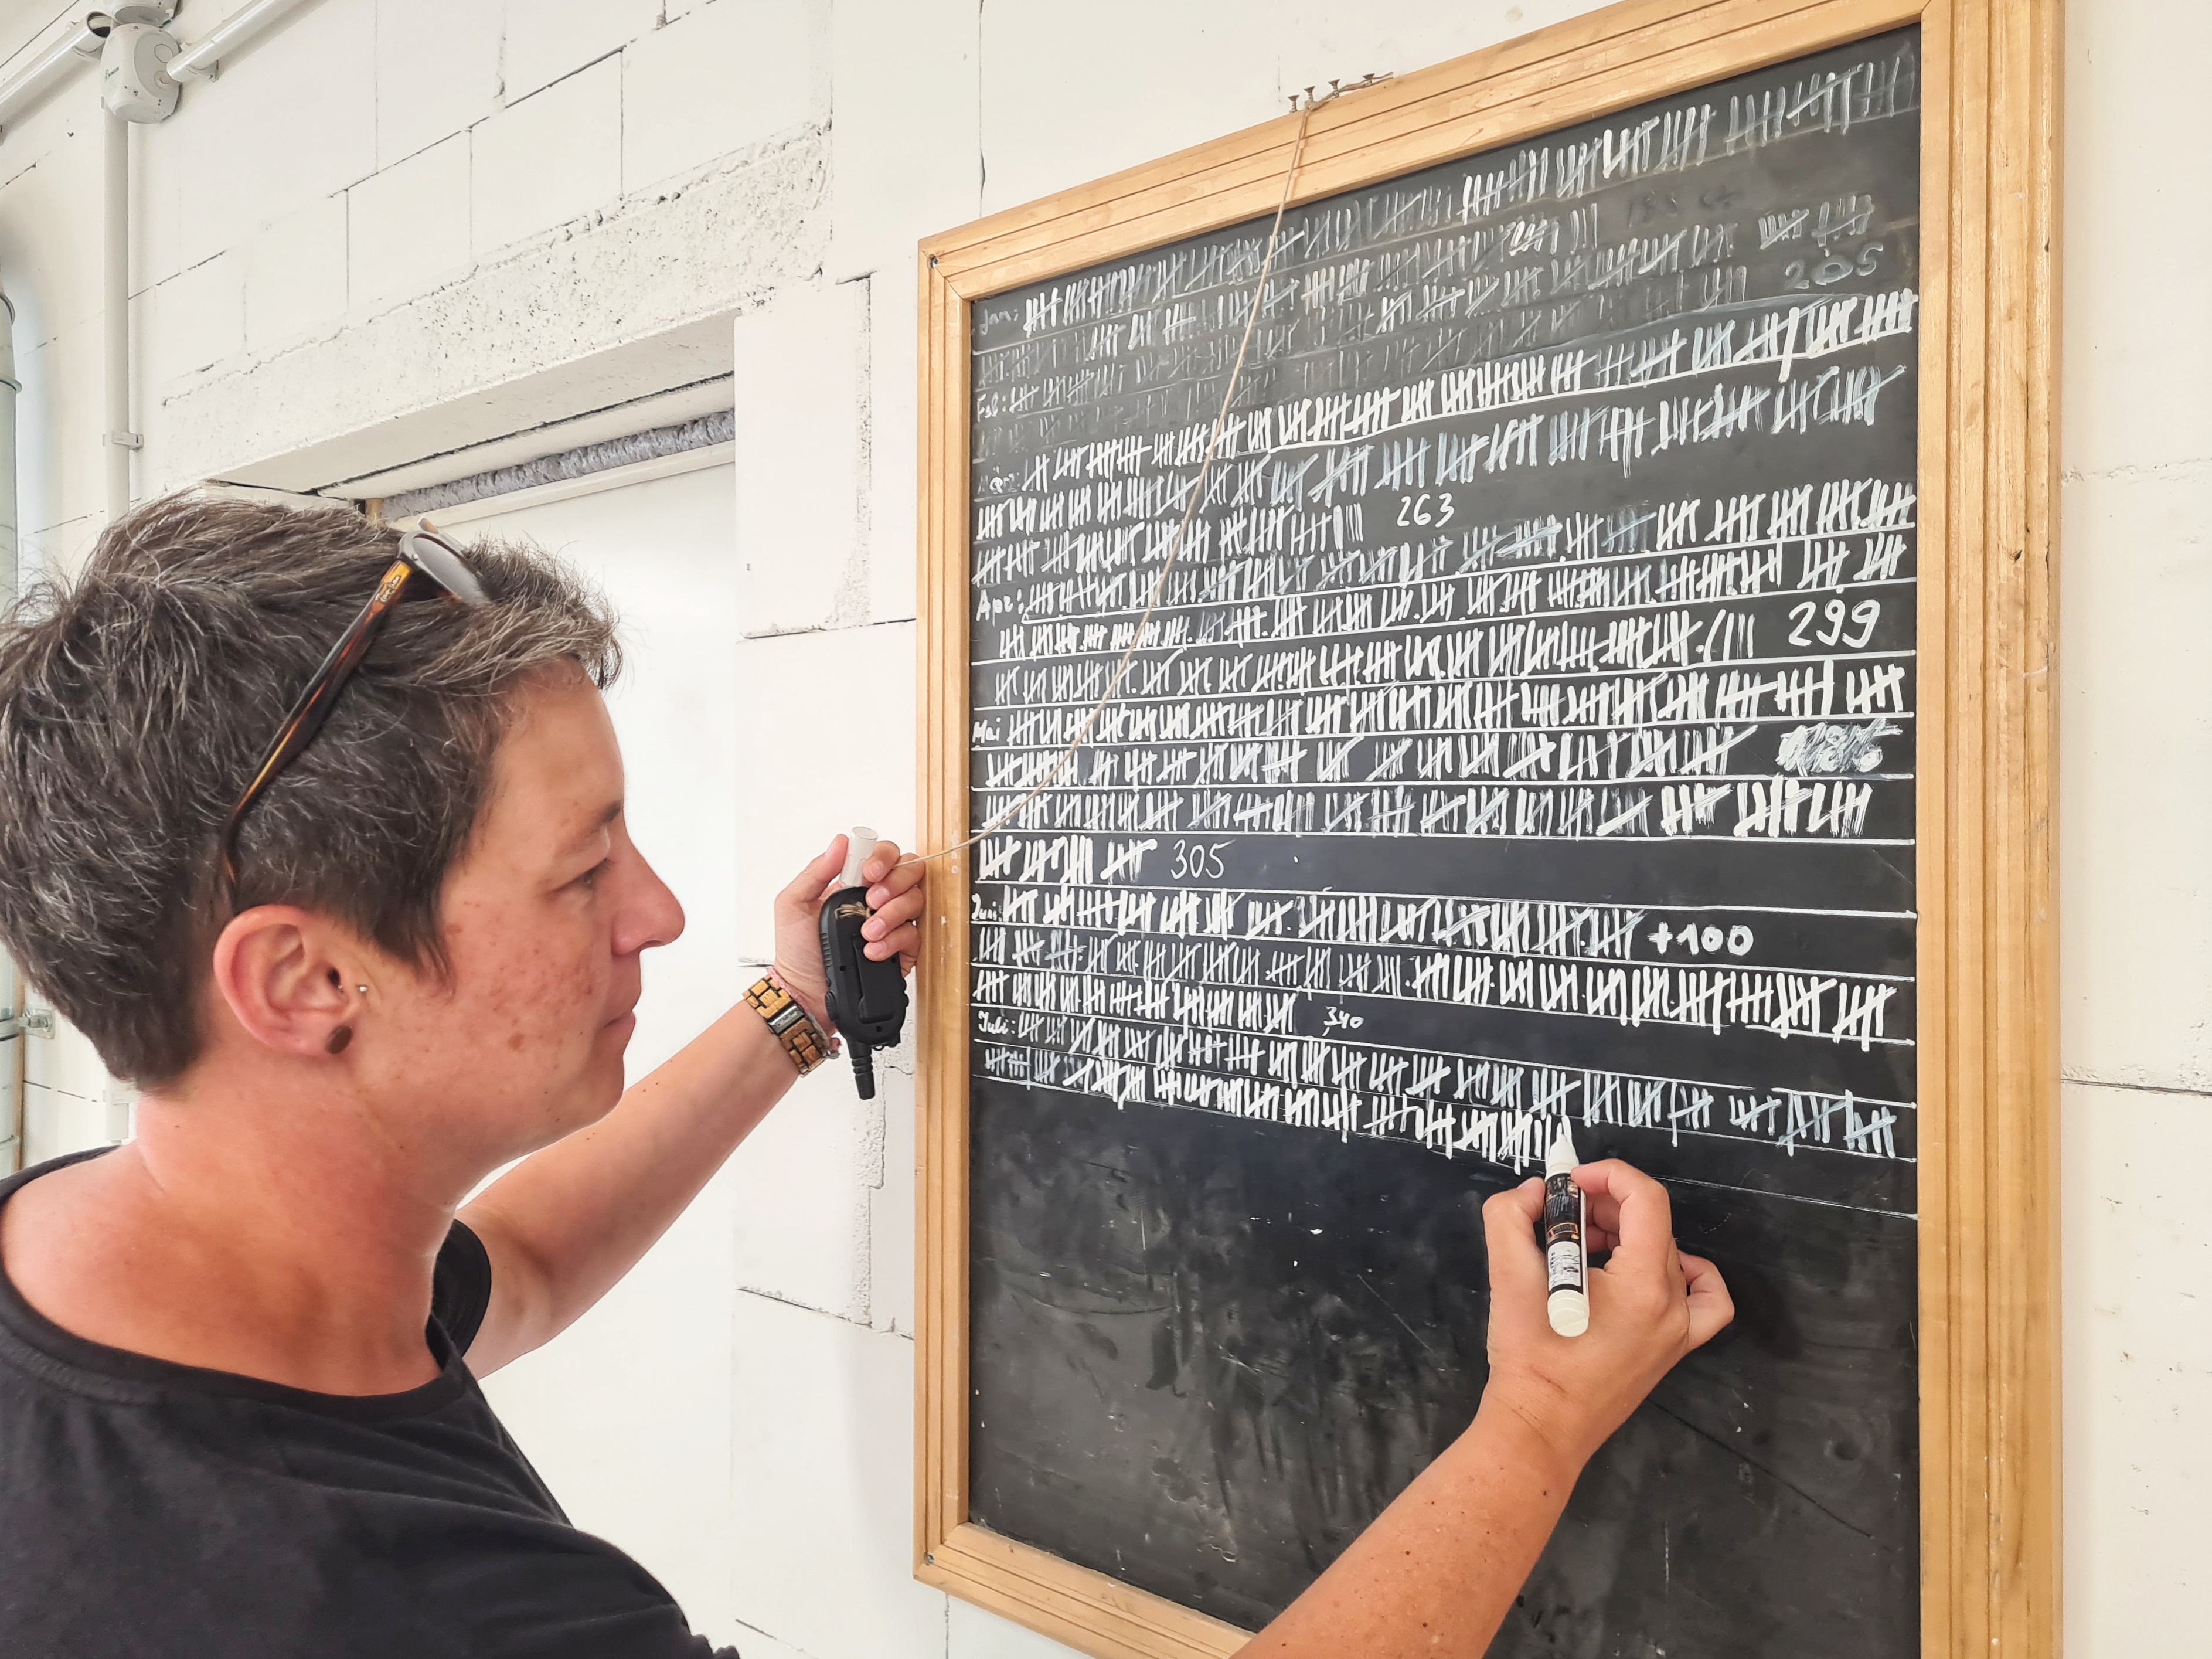 Jan:
Feb:
205
März
263
Apr:
299
Mai
305
Juni: +100
340
Juli: